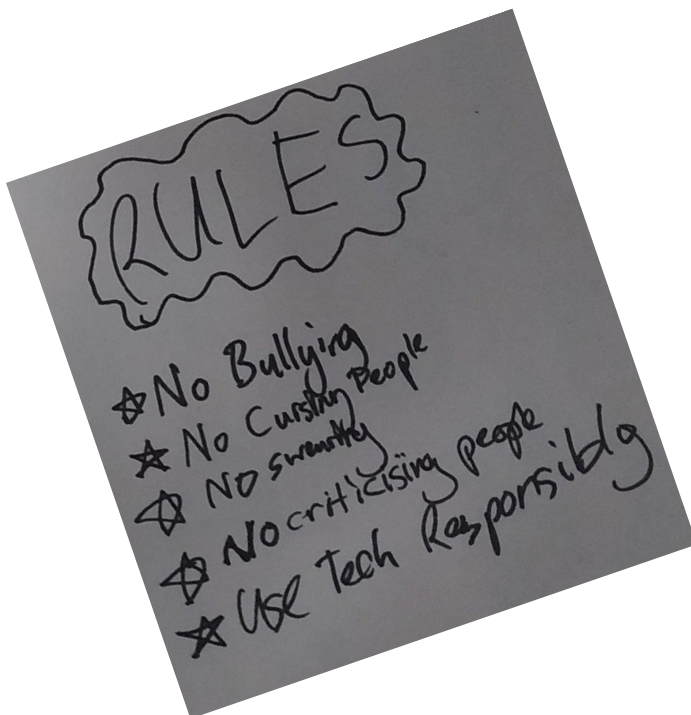 RULES
No Bullying
No Cursing People
No swearing
No criticising people
Use Tech Responsibly